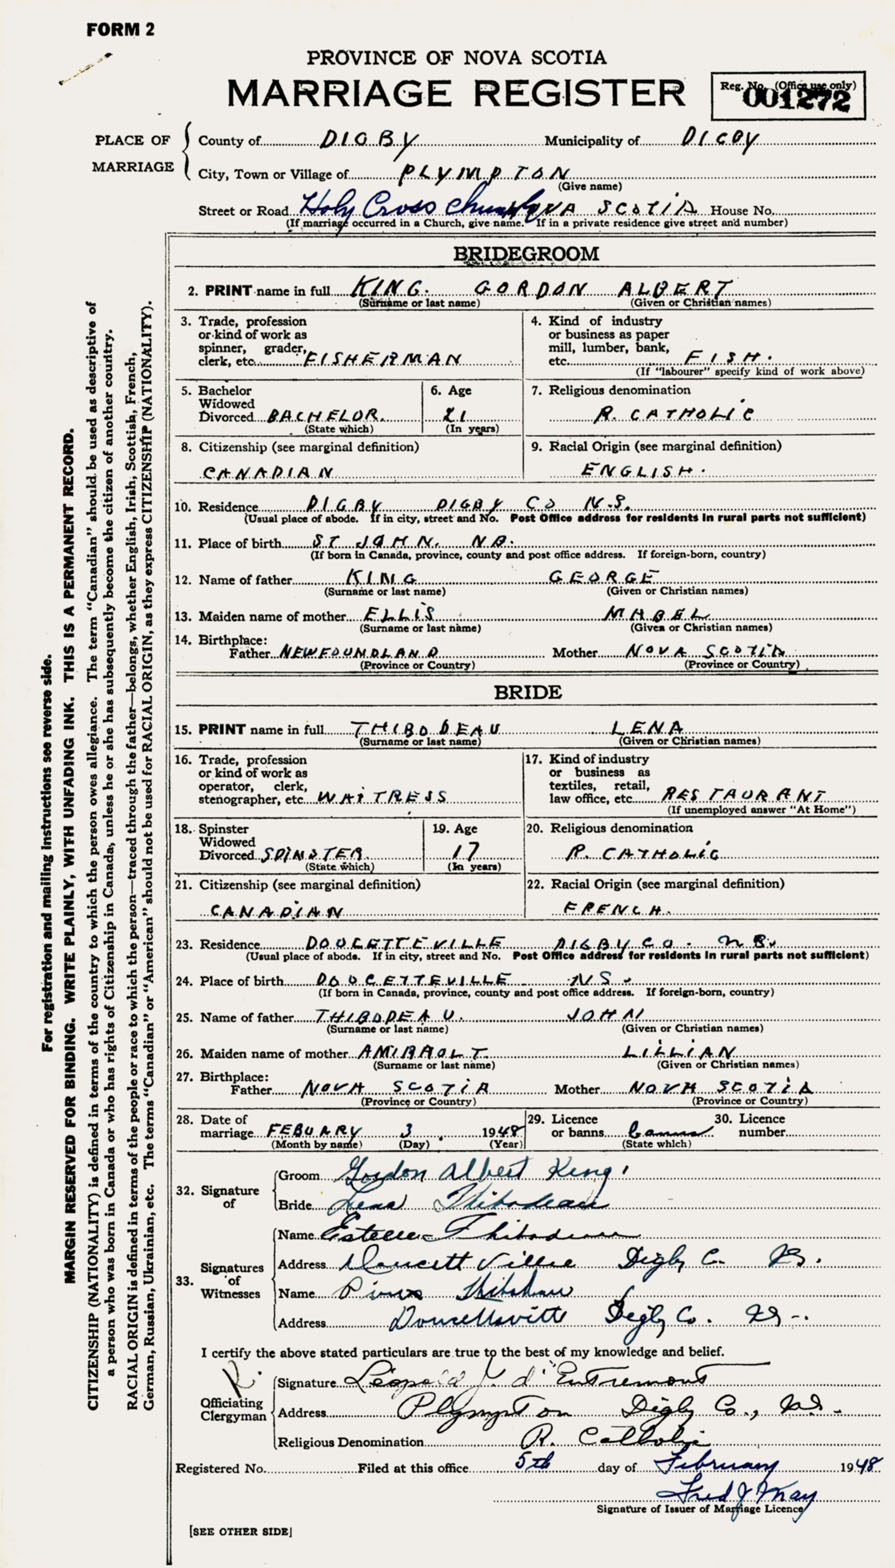 FORM 2
PROVINCE OF NOVA SCOTIA
MARRIAGE REGISTER
Reg. No. (Office use only)
001272
PLACE OF MARRIAGE
County of DIGBY Municipality of DIGBY
City, Town or Village of PLYMPTON
(Give name)
Street or Road Holy Cross Church NOVA SCOTIA House No.
(If marriage occurred in a Church, give name. If in a private residence give street and number)
BRIDEGROOM
2. PRINT name in full KING. GORDON ALBERT
(Surname or last name) (Given or Christian names)
3. Trade, profession or kind of work as spinner, grader, clerk, etc. FISHERMAN
4. Kind of industry or business as paper mill, lumber, bank, etc. FISH.
(If "labourer" specify kind of work above)
5. Bachelor Widowed Divorced BACHELOR.
(State which)
6. Age 21
(In years)
7. Religious denomination
R. CATHOLIC
8. Citizenship (see marginal definition)
CANADIAN
9. Racial Origin (see marginal definition)
ENGLISH.
10. Residence DIGBY DIGBY CO N.S.
(Usual place of abode. If in city, street and No. Post Office address for residents in rural parts not sufficient)
11. Place of birth ST JOHN. NB.
(If born in Canada, province, county and post office address. If foreign-born, country)
12. Name of father KING GEORGE
(Surname or last name) (Given or Christian names)
13. Maiden name of mother ELLIS MABEL
(Surname or last name) (Given or Christian names)
14. Birthplace:
Father NEWFOUNDLAND Mother NOVA SCOTIA
(Province or Country) (Province or Country)
BRIDE
15. PRINT name in full THIBODEAU LENA
(Surname or last name) (Given or Christian names)
16. Trade, profession or kind of work as operator, clerk, stenographer, etc. WAITRESS
17. Kind of industry or business as textiles, retail, law office, etc. RESTAURANT
(If unemployed answer "At Home")
18. Spinster Widowed Divorced SPINSTER.
(State which)
19. Age 17
(In years)
20. Religious denomination
R. CATHOLIC
21. Citizenship (see marginal definition)
CANADIAN
22. Racial Origin (see marginal definition)
FRENCH.
23. Residence DOUCETTEVILLE DIGBY CO.
(Usual place of abode. If in city, street and No. Post Office address for residents in rural parts not sufficient)
24. Place of birth DOUCETTEVILLE NS.
(If born in Canada, province, county and post office address. If foreign-born, country)
25. Name of father THIBODEAU. JOHN
(Surname or last name) (Given or Christian names)
26. Maiden name of mother AMIRAOLT. LILLIAN
(Surname or last name) (Given or Christian names)
27. Birthplace:
Father NOVA SCOTIA Mother NOVA SCOTIA
(Province or Country) (Province or Country)
28. Date of marriage FEBUARY 3 1948
(Month by name) (Day) (Year)
29. Licence or banns banns
(State which)
30. Licence number
32. Signature of
Groom Gordon Albert King
Bride Lena Thibodeau
33. Signatures of Witnesses
Name Estelle Thibodeau
Address Doucett Villie Digby C. NS.
Name Thibodeau
Address Digby Co. NS.
I certify the above stated particulars are true to the best of my knowledge and belief.
Officiating Clergyman
Signature Léopold J. d'Entremont
Address Plympton Digby Co., N.S.
Religious Denomination R. Catholic
Registered No. Filed at this office 5th day of February 1948
Fred J May
Signature of Issuer of Marriage Licence
[SEE OTHER SIDE]
For registration and mailing instructions see reverse side.
MARGIN RESERVED FOR BINDING. WRITE PLAINLY, WITH UNFADING INK. THIS IS A PERMANENT RECORD.
CITIZENSHIP (NATIONALITY) is defined in terms of the country to which the person owes allegiance. The term "Canadian" should be used as descriptive of
a person who was born in Canada or who has rights of Citizenship in Canada, unless he or she has subsequently become the citizen of another country.
RACIAL ORIGIN is defined in terms of the people or race to which the person—traced through the father—belongs, whether English, Irish, Scottish, French,
German, Russian, Ukrainian, etc. The terms "Canadian" or "American" should not be used for RACIAL ORIGIN, as they express CITIZENSHIP (NATIONALITY).